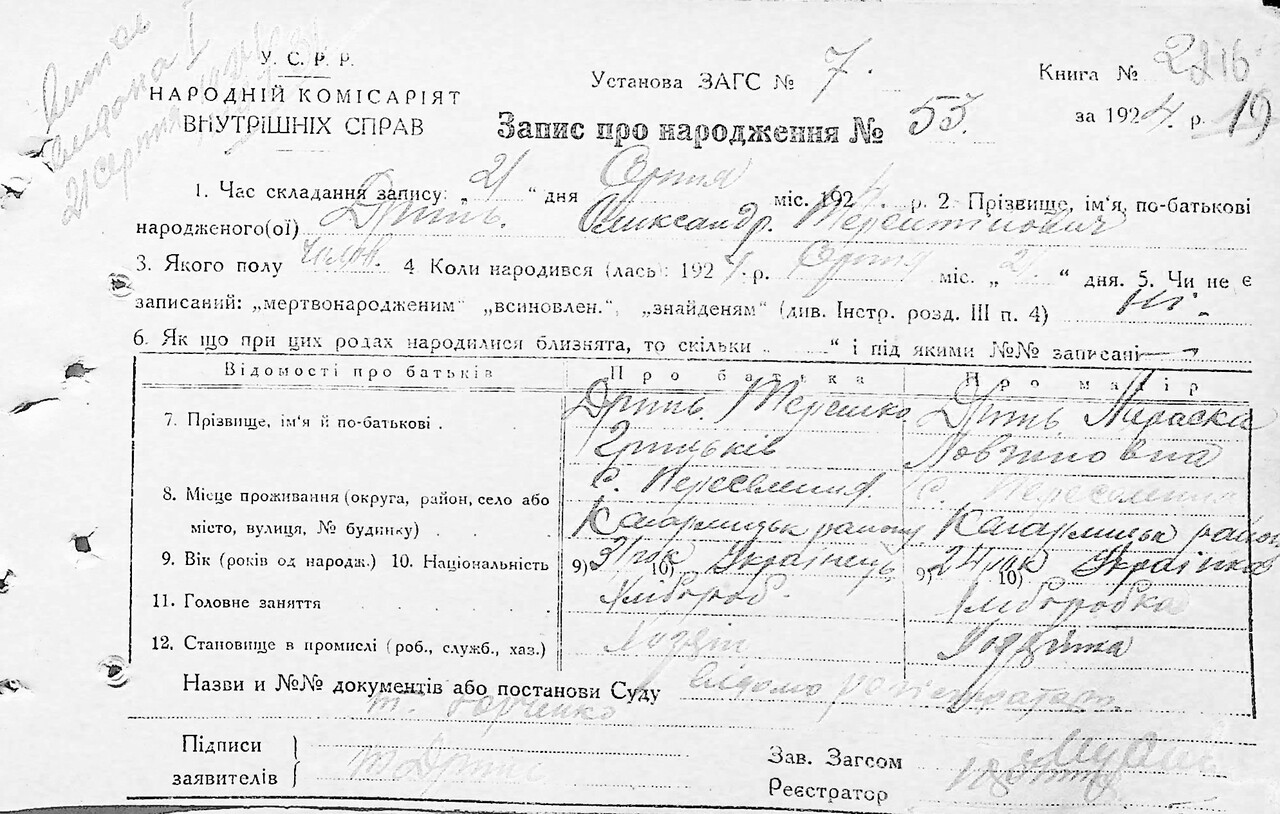 Витяг
видана
21 серпня
У. С. Р. Р.
НАРОДНІЙ КОМІСАРІЯТ
ВНУТРІШНІХ СПРАВ
Установа ЗАГС № 7.
Книга № 2216
за 1924 р. 19
Запис про народження № 53.
1. Час складання запису: „ 21 “ дня Серпня міс. 1924 р. 2. Прізвище, ім'я, по-батькові
народженого(ої) Дриль. Олександр. Терентійович
3. Якого полу чолов. 4 Коли народився (лась): 1924. р. Серпня міс. „ 21. “ дня. 5. Чи не є
записаний: „мертвонародженим“ „всиновлен.“, „знайденям“ (див. Інстр. розд. III п. 4) Ні.
6. Як що при цих родах народилися близнята, то скільки „ “ і під якими №№ записані —
Відомості про батьків Про батька Про матір
7. Прізвище, ім'я й по-батькові . Терешко Параска
Гриньків
8. Місце проживання (округа, район, село або С. Переселення. С. Переселення
місто, вулиця, № будинку) . . . Кагарлицьк району Кагарлицьк район
9. Вік (років од народж.) 10. Національність 9) 31 рок 10) Українець 9) 24 рок 10) Українка
11. Головне заняття . . . . Хлібороб. Хліборобка
12. Становище в промислі (роб., служб., хаз.) Хозяїн Хозяйка
Назви и №№ документів або постанови Суду відомо реєстратору
т. Юрченко
Підписи
заявителів
Зав. Загсом
Реєстратор